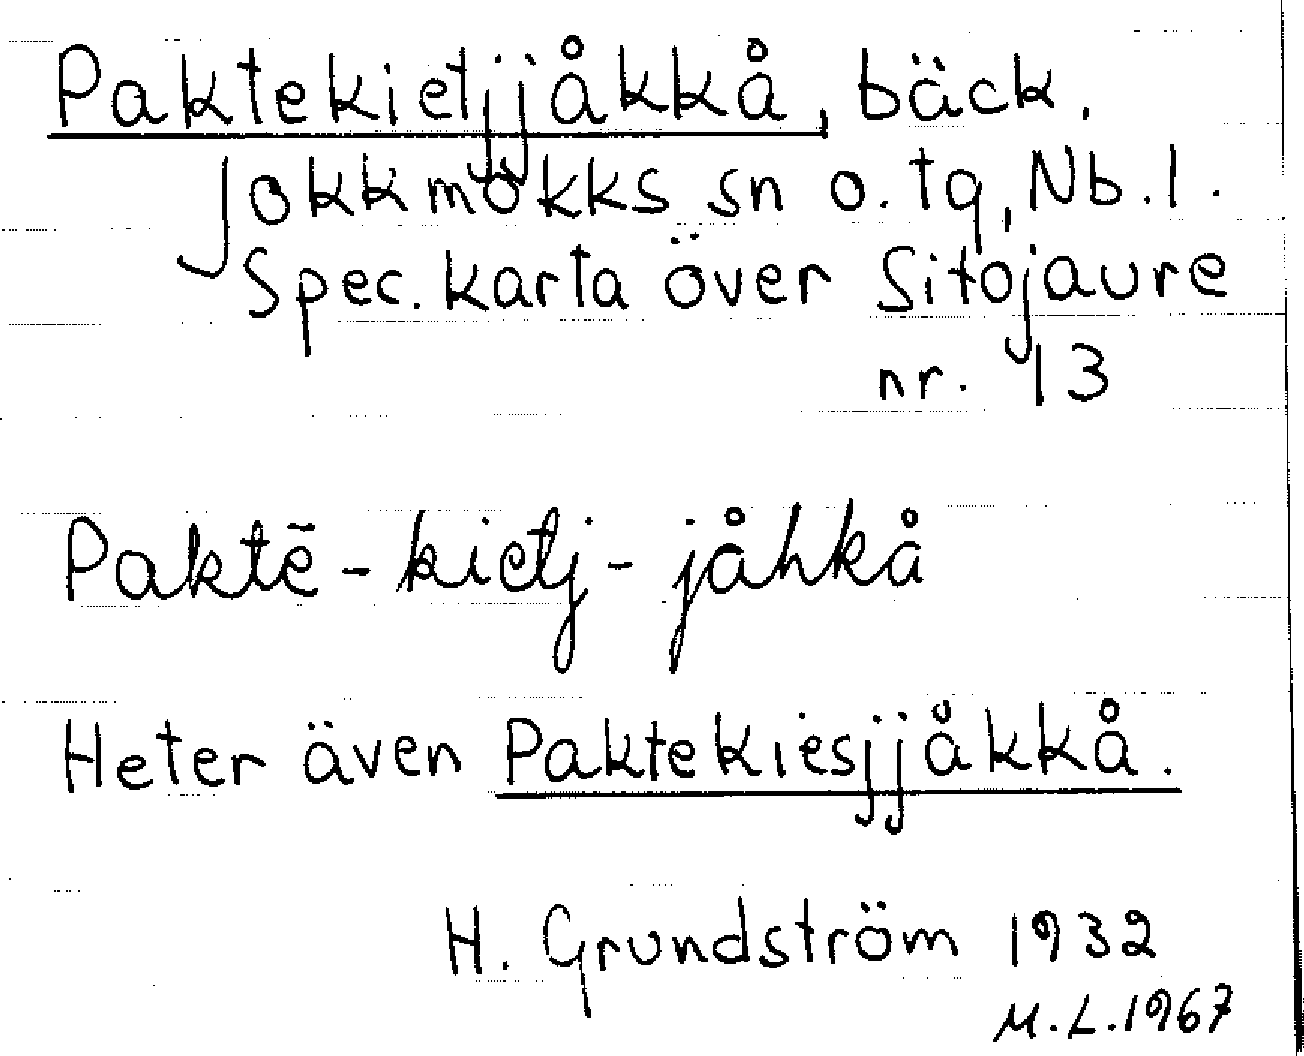 Paktekietjjåkkå, bäck.
Jokkmokks sn o. tg, Nb. l.
Spec. karta över Sitojaure
nr. 13
Paktē - kietj - jåhkå
Heter även Paktekiesjjåkkå.
H. Grundström 1932
M. L. 1967